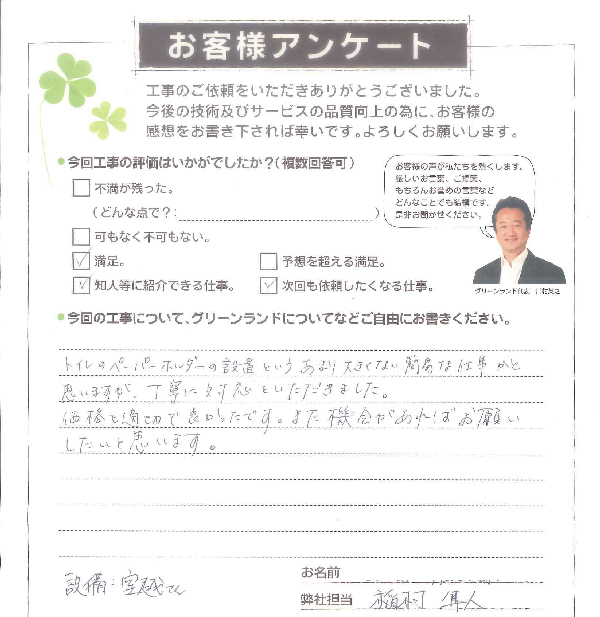 お客様アンケート
工事のご依頼をいただきありがとうございました。
今後の技術及びサービスの品質向上の為に、お客様の
感想をお書き下されば幸いです。よろしくお願いします。
●今回工事の評価はいかがでしたか？（複数回答可）
不満が残った。
（どんな点で？：　）
可もなく不可もない。
満足。
予想を超える満足。
知人等に紹介できる仕事。
次回も依頼したくなる仕事。
お客様の声が私たちを熱くします。
厳しいお言葉、ご提案、
もちろんお誉めの言葉など
どんなことでも結構です。
是非お聞かせください。
グリーンランド代表
●今回の工事について、グリーンランドについてなどご自由にお書きください。
トイレのペーパーホルダーの設置というあまり大きくない簡易な仕事かと
思いますが、丁寧に対応をいただきました。
価格も適切で良かったです。また機会があればお願い
したいと思います。
お名前
設備：室越さん
弊社担当 稲村 隼人